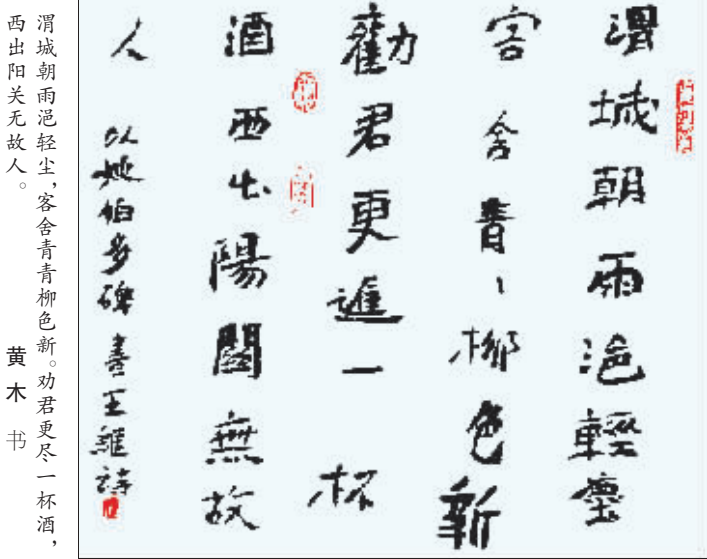 渭城朝雨浥輕塵
客舍青〻柳色新
勸君更進一杯
酒西出陽關無故
人
以姚伯多碑書王維詩
渭城朝雨浥轻尘，客舍青青柳色新。劝君更尽一杯酒，
西出阳关无故人。
黄木 书